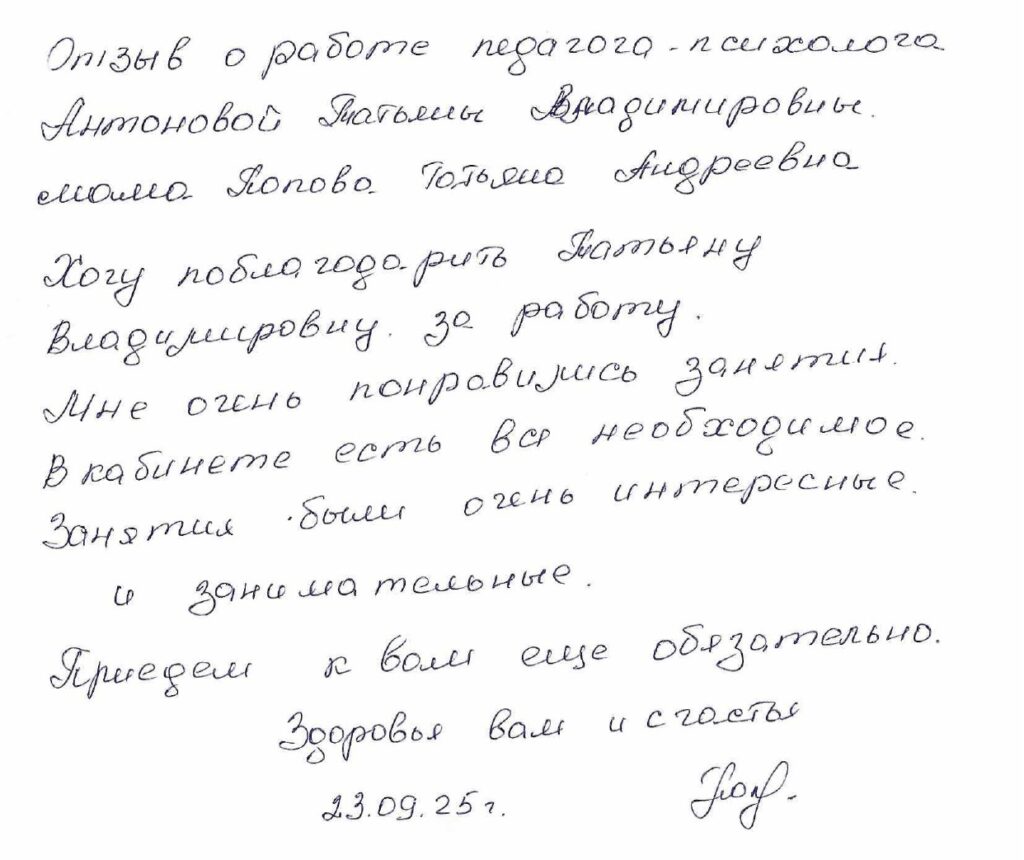 Отзыв о работе педагога-психолога
Антоновой Татьяны Владимировны.
мама Попова Татьяна Андреевна
Хочу поблагодарить Татьяну
Владимировну. за работу.
Мне очень понравились занятия.
В кабинете есть все необходимое.
Занятия были очень интересные.
и занимательные.
Приедем к вам еще обязательно.
Здоровья вам и счастья
23.09.25г.